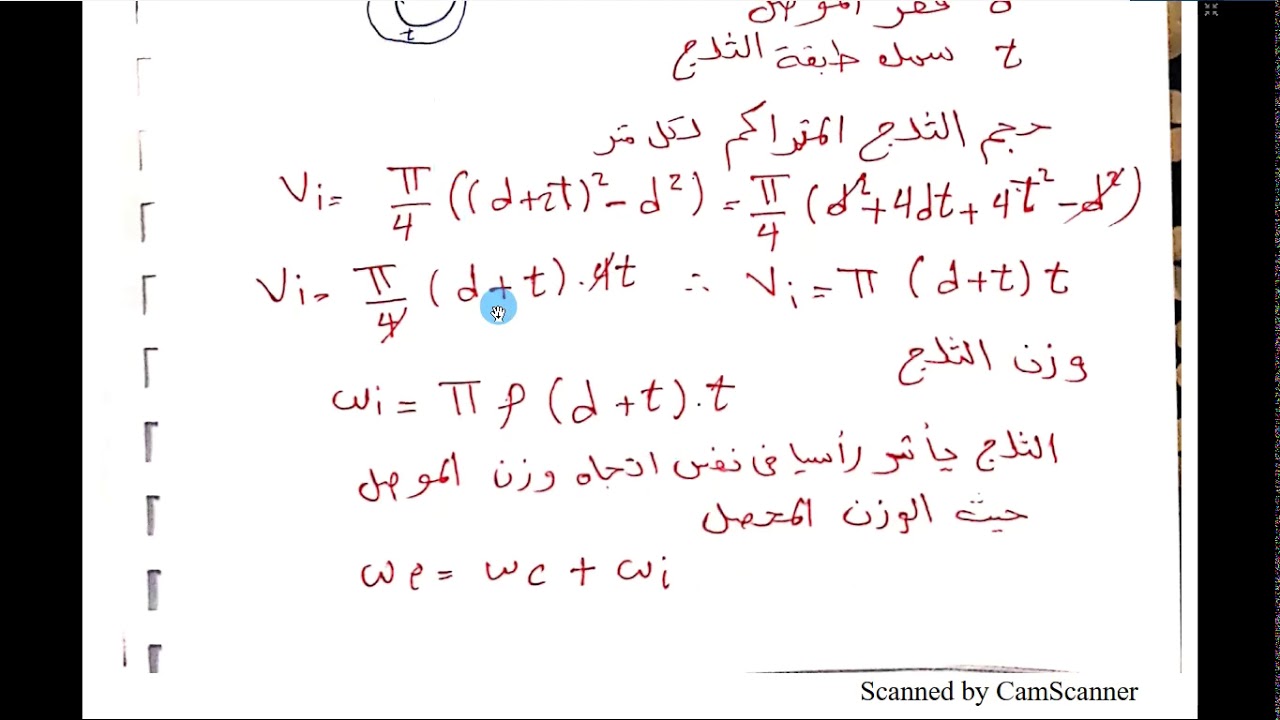 d قطر الموصل
t
t سمك طبقة الثلج
حجم الثلج المتراكم لكل متر
Vi = π/4 ((d+2t)² - d²) = π/4 (d² + 4dt + 4t² - d²)
Vi = π/4 (d+t).4t ∴ Vi = π (d+t) t
وزن الثلج
ωi = π ρ (d+t).t
الثلج يأثر رأسيا فى نفس اتجاه وزن الموصل
حيث الوزن المحصل
ωe = ωc + ωi
Scanned by CamScanner